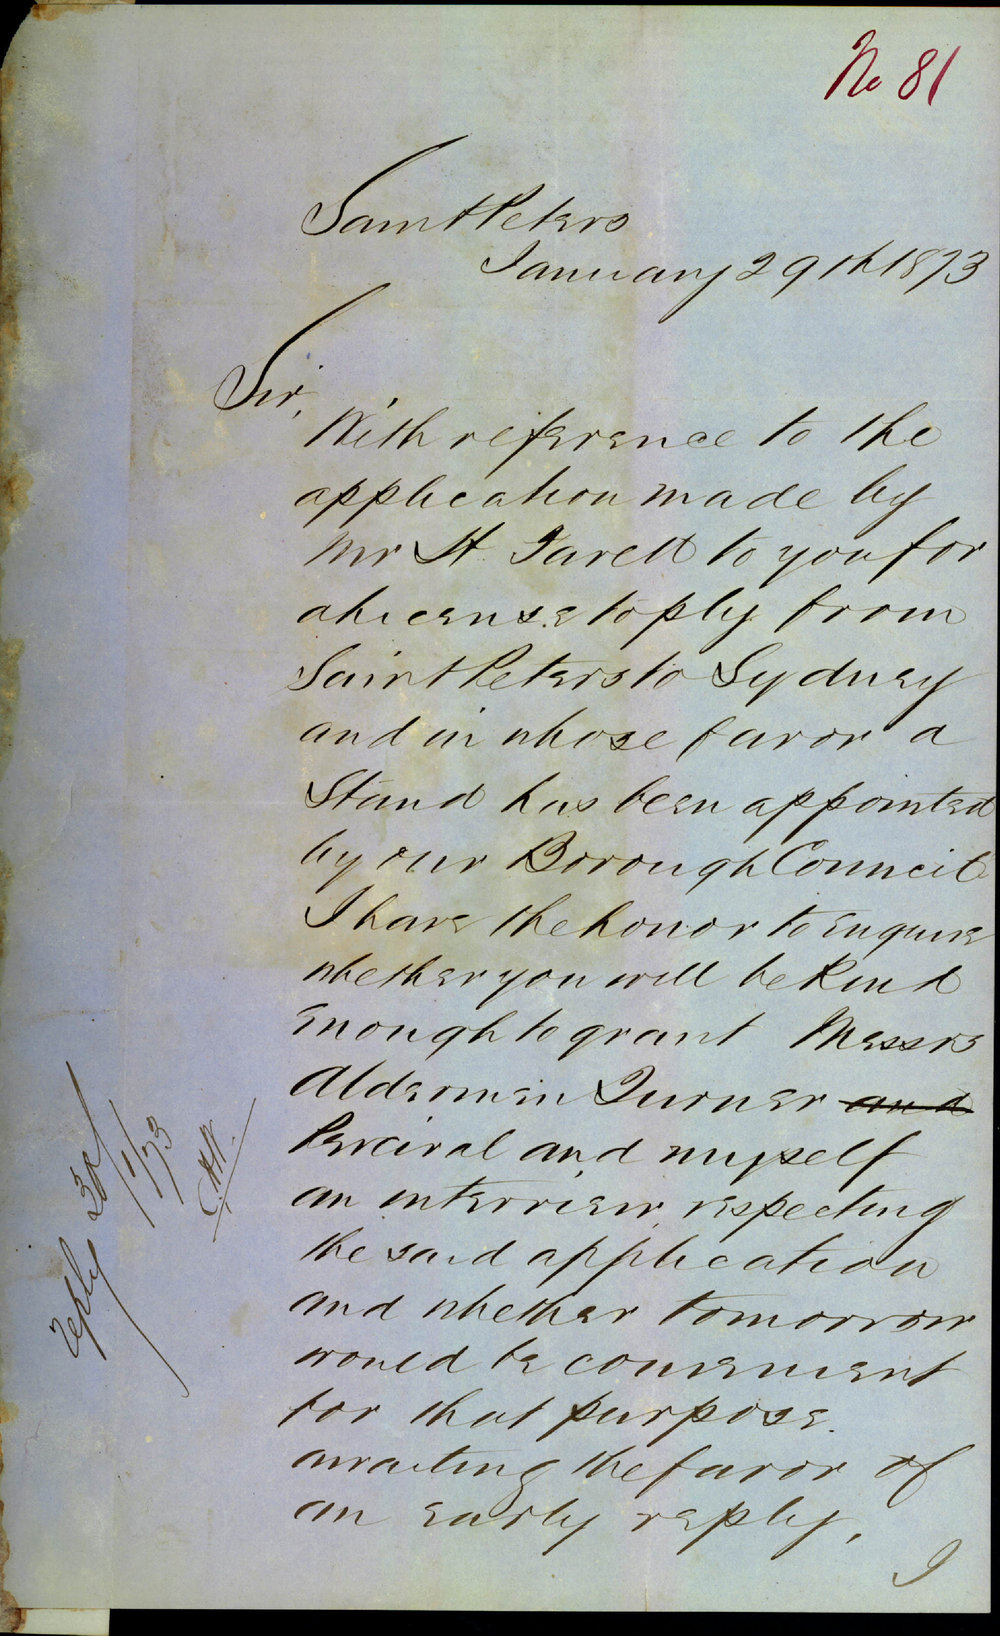 No 81
Saint Peters
January 29th 1873
Sir,
With reference to the
application made by
Mr H to you for
a license to ply from
Saint Peters to Sydney
and in whose favor a
Stand has been appointed
by our Borough Council
I have the honor to enquire
whether you will be kind
enough to grant Messrs
Aldermen Turner and
Percival and myself
an interview respecting
the said application
and whether tomorrow
would be convenient
for that purpose.
awaiting the favor of
an early reply,
I
reply 30/1/73